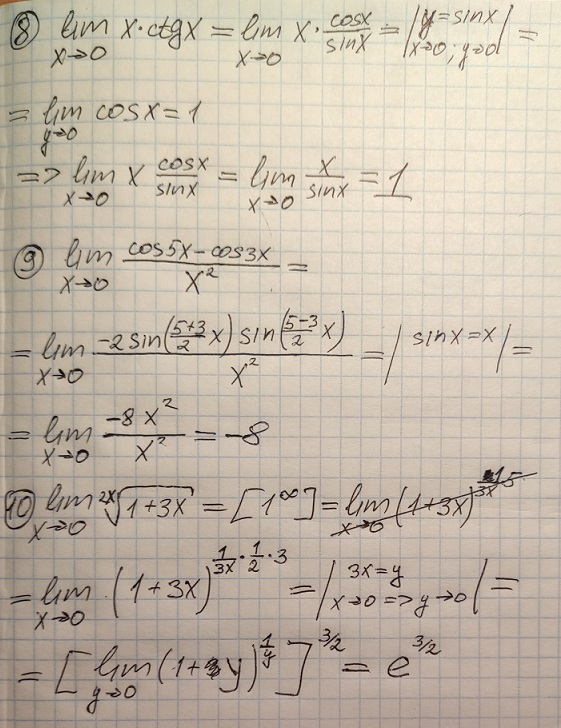 ⑧ lim x→0 x·ctgx = lim x→0 x · cosx/sinx = |y=sinx x→0; y→0| =
= lim y→0 cosx = 1
=> lim x→0 x cosx/sinx = lim x→0 x/sinx = 1
⑨ lim x→0 (cos5x-cos3x)/x² =
= lim x→0 (-2 sin(5+3/2 x) sin(5-3/2 x))/x² = | sinx = x | =
= lim x→0 (-8x²)/x² = -8
⑩ lim x→0 ²ˣ√(1+3x) = [1^∞] = lim x→0 (1+3x)
= lim x→0 (1+3x)^(1/3x · 1/2 · 3) = |3x=y x→0 => y→0| =
= [lim y→0 (1+y)^(1/y)]^(3/2) = e^(3/2)